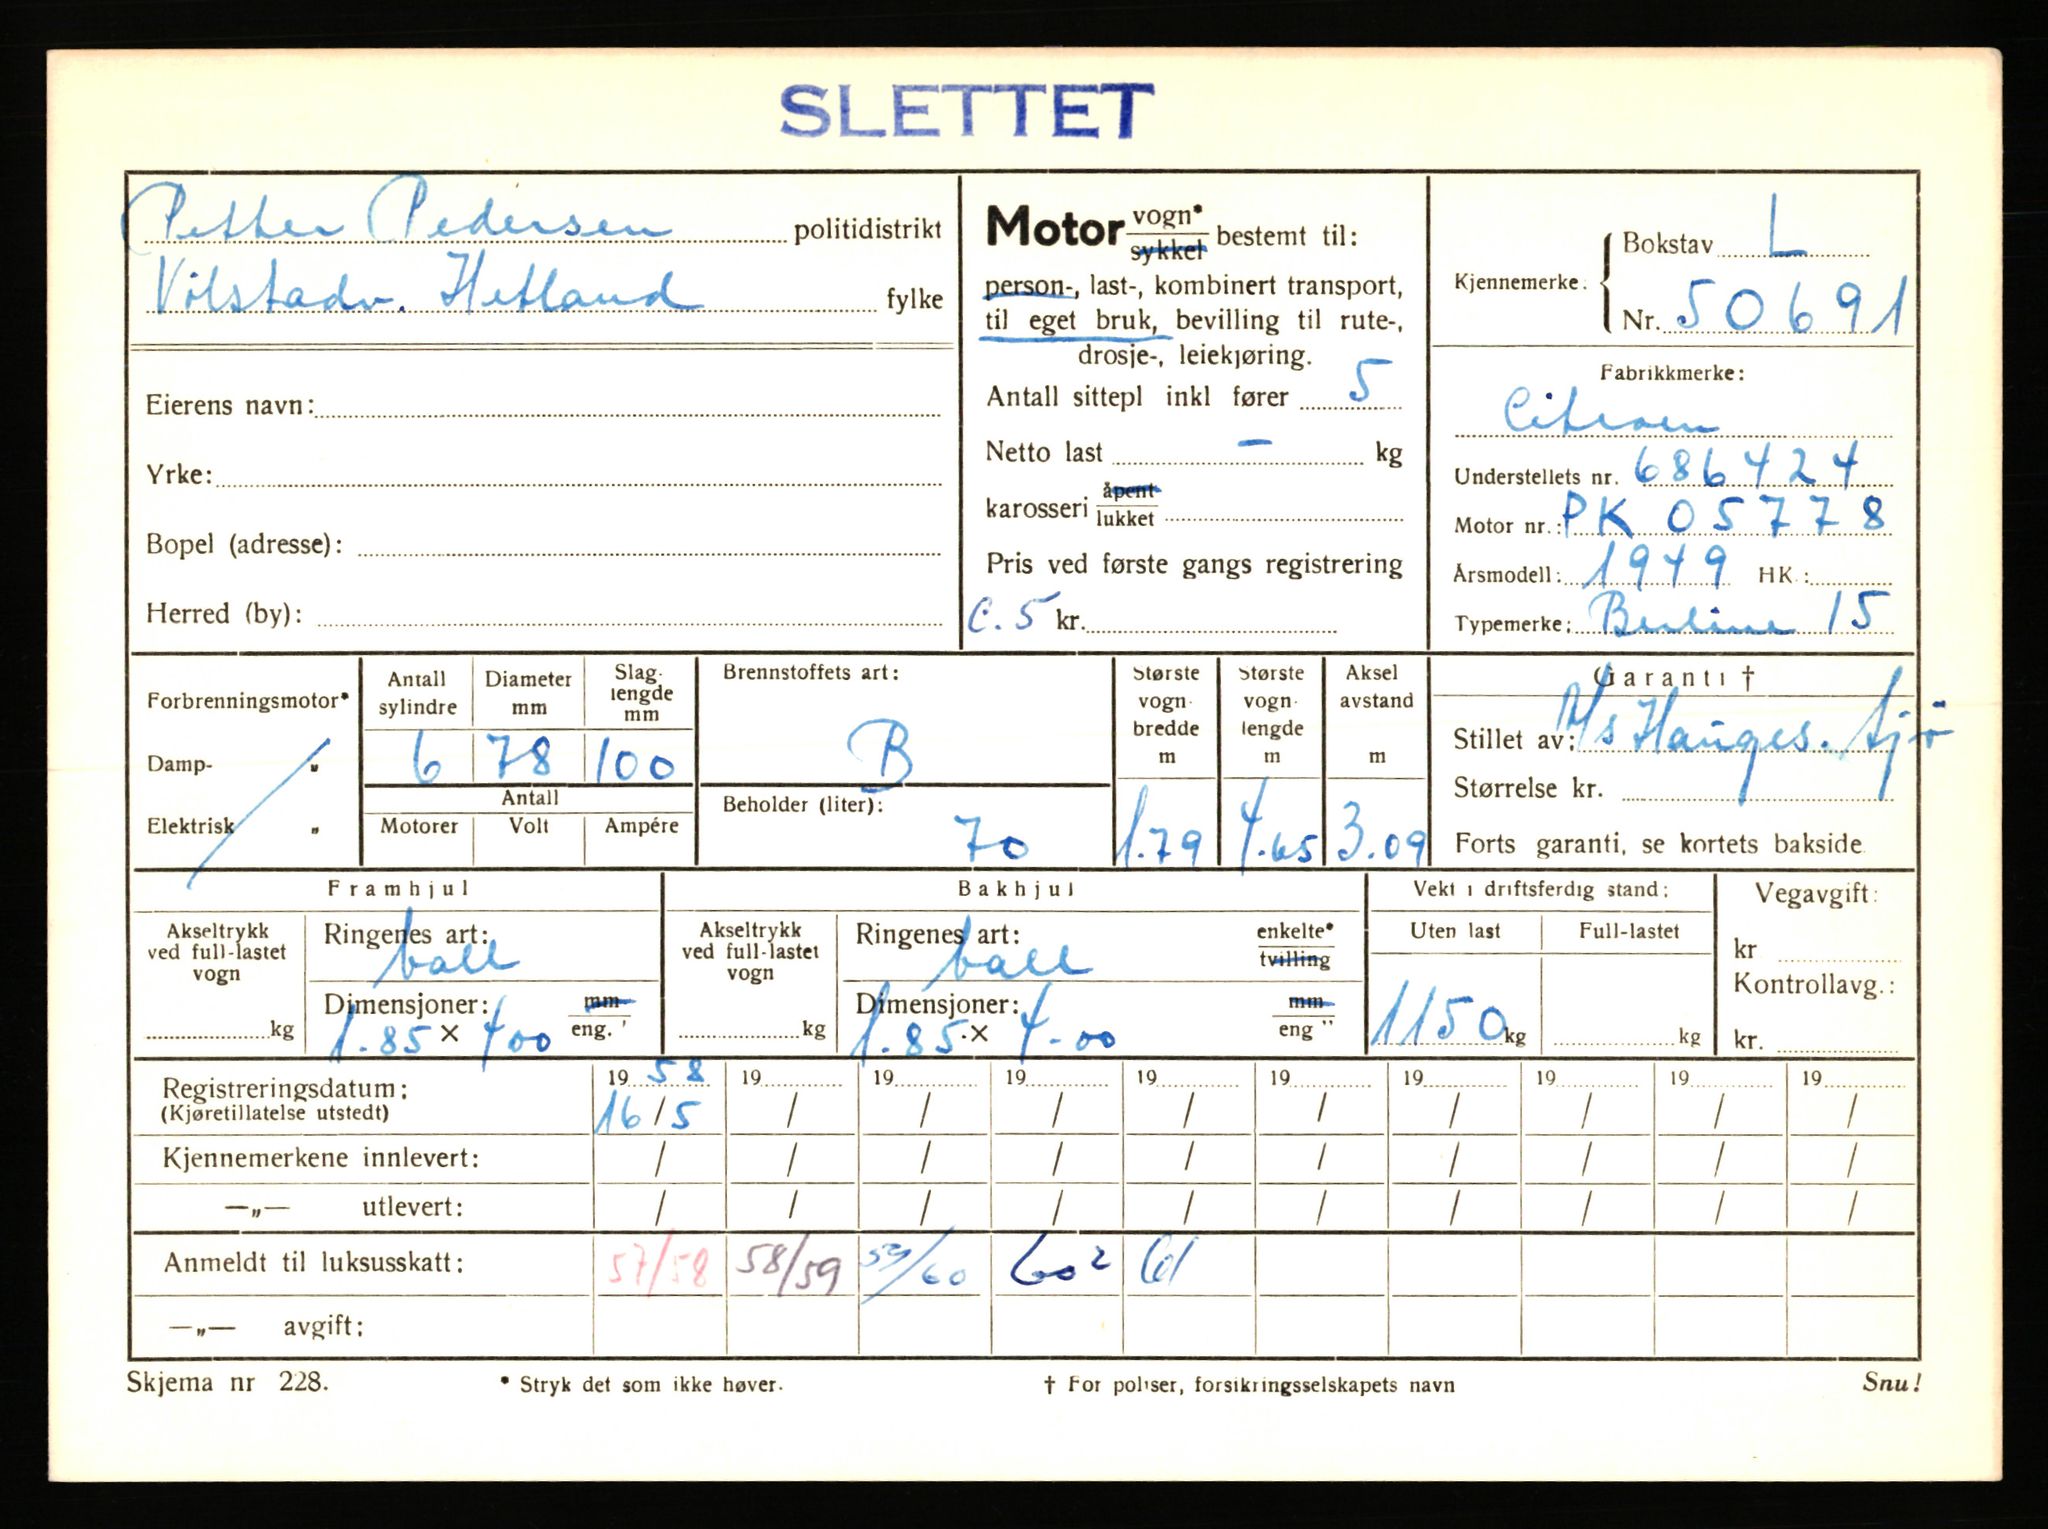 SLETTET
Petter Pedersen politidistrikt
Vølstadv. Hetland fylke
Eierens navn:
Yrke:
Bopel (adresse):
Herred (by):
Motor vogn* sykkel bestemt til:
person-, last-, kombinert transport,
til eget bruk, bevilling til rute-,
drosje-, leiekjøring.
Antall sittepl inkl fører 5
Netto last — kg
karosseri åpent lukket
Pris ved første gangs registrering
C.5 kr.
Kjennemerke: Bokstav L
Nr. 50691
Fabrikkmerke:
Citroen
Understellets nr. 686424
Motor nr.: PK 05778
Årsmodell: 1949 HK.:
Typemerke: Berline 15
Forbrenningsmotor*
Damp- „
Elektrisk „
Antall sylindre
Diameter mm
Slag-lengde mm
6 78 100
Antall
Motorer Volt Ampére
Brennstoffets art:
B
Beholder (liter):
70
Største vogn-bredde m
1.79
Største vogn-lengde m
4.65
Aksel avstand m
3.09
Garanti †
Stillet av: A/s Hauges. Sjø
Størrelse kr.
Forts garanti, se kortets bakside
Framhjul
Akseltrykk ved full-lastet vogn
kg
Ringenes art:
ball
Dimensjoner: mm
1.85 × 400 eng. "
Bakhjul
Akseltrykk ved full-lastet vogn
kg
Ringenes art: enkelte*
ball tvilling
Dimensjoner: mm
1.85 × 4.00 eng "
Vekt i driftsferdig stand:
Uten last Full-lastet
1150 kg kg
Vegavgift:
kr
Kontrollavg.:
kr.
Registreringsdatum: 19 58 19 19 19 19 19 19 19 19 19
(Kjøretillatelse utstedt) 16/5 / / / / / / / / /
Kjennemerkene innlevert: / / / / / / / / / /
—„— utlevert: / / / / / / / / / /
Anmeldt til luksusskatt: 57/58 58/59 59/60 60² 61
—„— avgift:
Skjema nr 228. * Stryk det som ikke høver. † For poliser, forsikringsselskapets navn Snu!